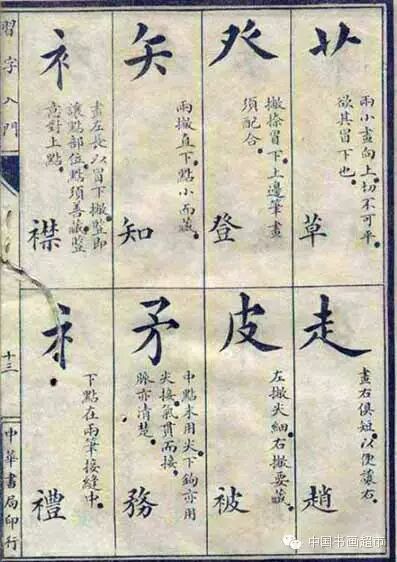 艹
兩小畫向上。切不可平。
欲其冒下也。
草
癶
撇捺冒下。上邊筆畫
須配合。
登
矢
兩撇直下。點小而藏。
知
衤
畫左長。以冒下撇。豎即
讓點部位。點須善藏。豎
意對上點。
襟
走
畫右俱短。以便讓右。
趙
皮
左撇尖細。右撇要藏。
被
矛
中點末用尖。下鉤亦用
尖接。氣貫而接。
脈亦清楚。
務
礻
下點在兩筆接縫中。
禮
習字入門
十三
中華書局印行
中国书画超市